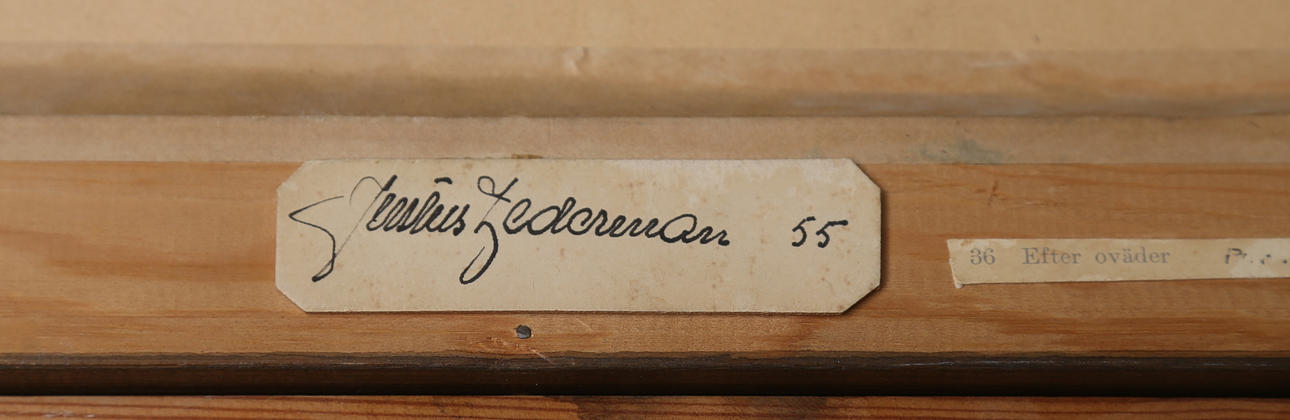 Justus Zederman 55
36 Efter oväder